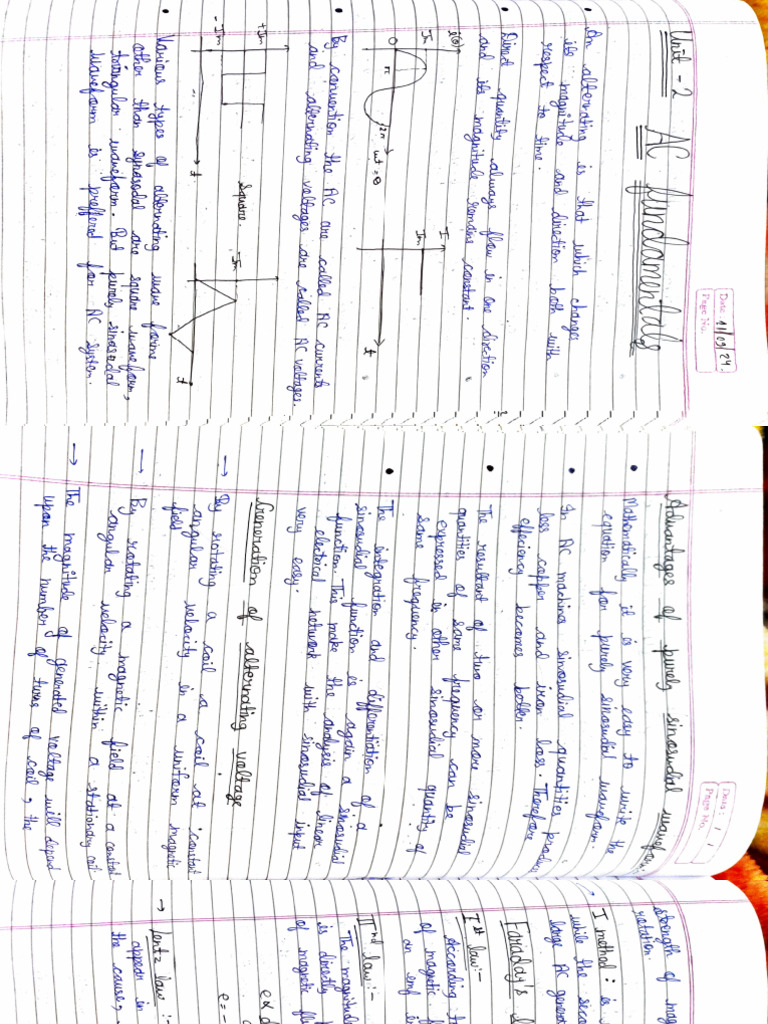 Date: 11/09/24.
Page No.
Unit - 2
AC fundamentals
An alternating is that which changes
its magnitude and direction both with
respect to time.
Direct quantity always flow in one direction
and its magnitude remains constant.
i(θ)
Im
0
π
2π
wt = θ
I
Im
t
By convention the AC are called AC currents
and alternating voltages are called AC voltages.
+Im
-Im
t
Square.
Im
t
Various types of alternating wave forms
other than synosodal are square waveform,
triangular waveform. But purely sinosodal
waveform is preffered for AC system.
Date: / /
Page No.
Advantages of purely sinosudal waveform:
Mathematically it is very easy to write the
equation for purely sinosudal waveform.
In AC machine sinosudial quantities produce
less copper and iron loss. Therefore
efficiency becomes better.
The resultant of two or more sinosudial
quantities of same frequency can be
expressed in other sinosudial quantity of
same frequency.
The integration and differentiation of a
sinosudial function is again a sinosudial
function. This make the analysis of linear
electrical network with sinosudial input
very easy.
Generation of alternating voltage
→ By rotating a coil a coil at constant
angular velocity in a uniform magnetic
field
→ By rotating a magnetic field at a constant
angular velocity within a stationary coil
→ The magnitude of generated voltage will depend
upon the number of turns of coil, the
strength of mag
rotation.
→ I method: is
while the seco
large AC genera
Faraday's
Ist law:-
According t
of magnetic f
an emf i
IInd law:-
The magnitud
is directly
of magnetic fl
e ∝ d
e = -
→ Lentz law:-
appears in
the cause,